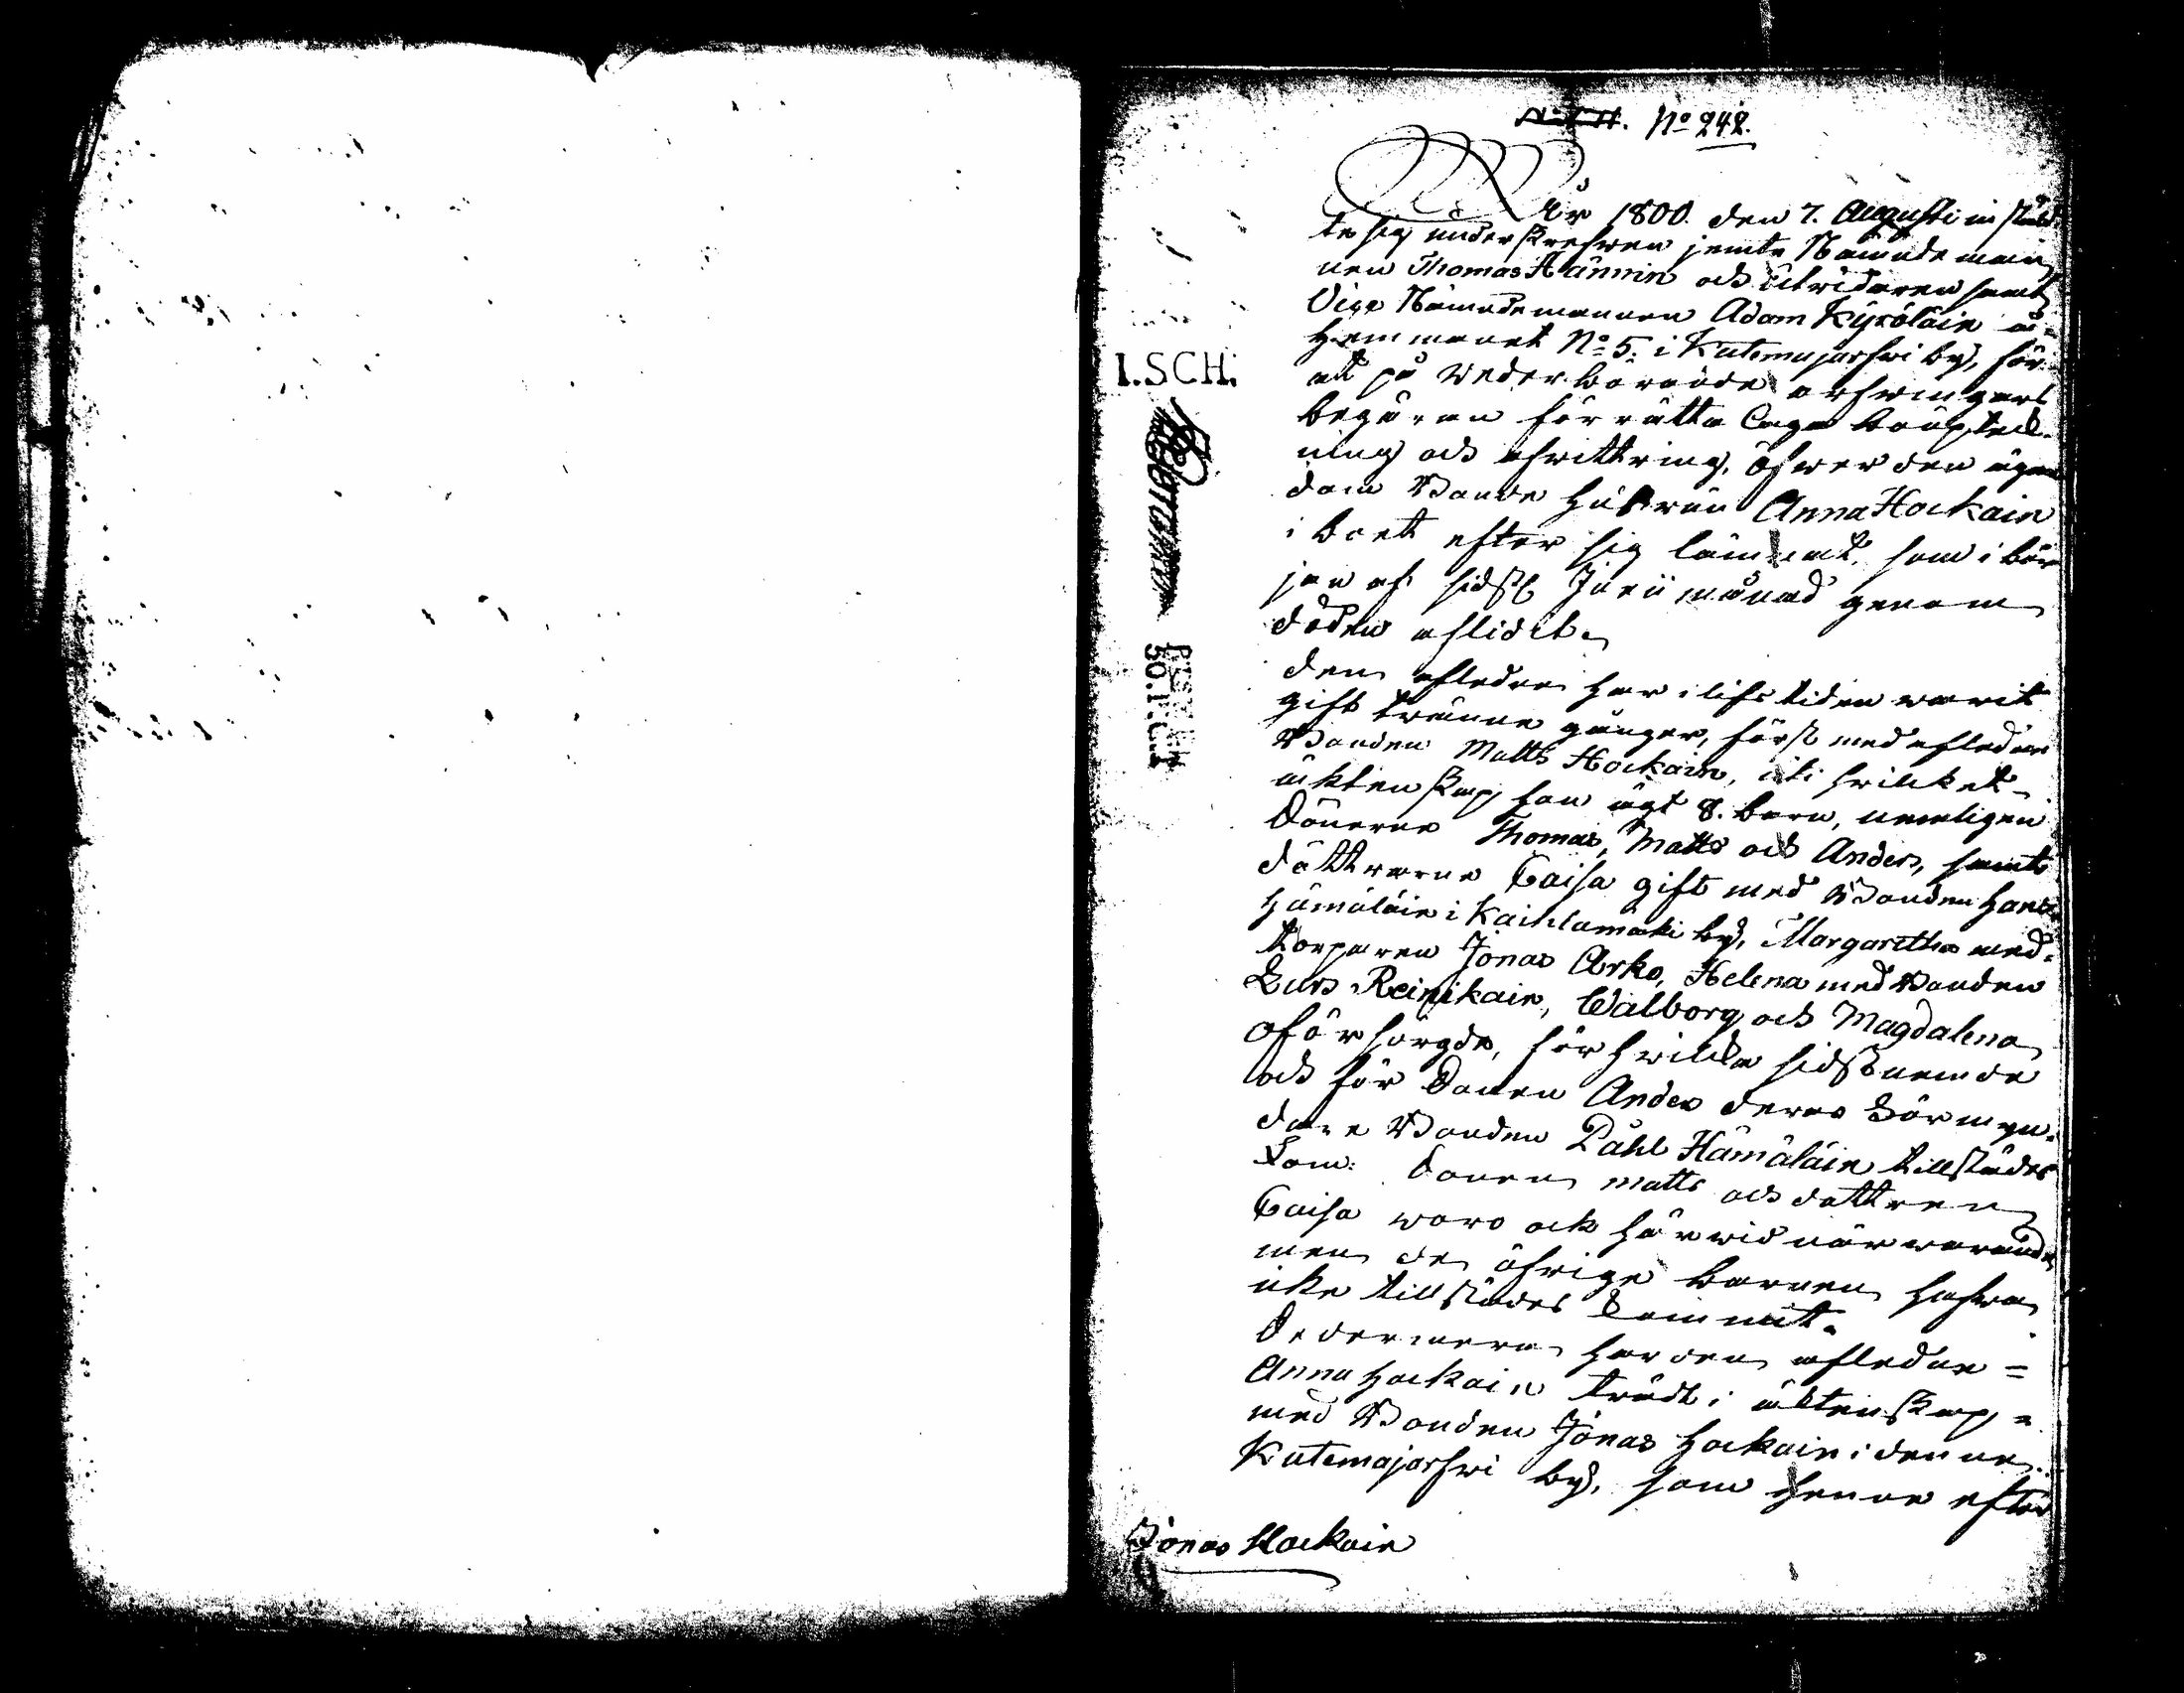 No 242.
År 1800. den 7. Augusti instäld
te sig underskrefwen jemte Nämndeman
nen Thomas Hännin och utridaren samt
Vice Nämndemannen Adam Kyröläin å
Hemmanet No 5: i Kutemajarfwi by, för
att på wederbörande arfwingars
begäran förrätta Laga boupteck-
ning och afwittring, öfwer den ägen
dom Bonde Hustrun Anna Hockain
i boet efter sig lämnat, som i bör
jan af sidstl Junii månad genom
döden aflidit.
Den afledne har i lifstiden warit
gift twänne gånger, först med afledne
Bonden Matts Hockain, uti hwilket
äktenskap hon ägt 8. barn, nemligen
Sönerne Thomas, Matts och Anders, samt
döttrarne Caisa gift med Bonden Hans
Hämäläin i Kaihlamäki by, Margaretha med
torparen Jonas Arko, Helena med Bonden
Lars Reinikain, Walborg och Magdalena
oförsörgde, för hwilka sidstnemde
och för Sonen Anders deras Förmyn-
dare Bonden Påhl Hämäläin tillstädes
kom: Sonen Matts och dottren
Caisa woro ock härwid närwarande
men de öfrige barnen hafwa
icke tillstädes kommit.
Dedermera har den afledne =
Anna Hockain trädt i äktenskap =
med Bonden Jonas Hockain i denne
Kutemajarfwi by, som henne efter
Jonas Hockain
I.SCH.
50.1.C.1